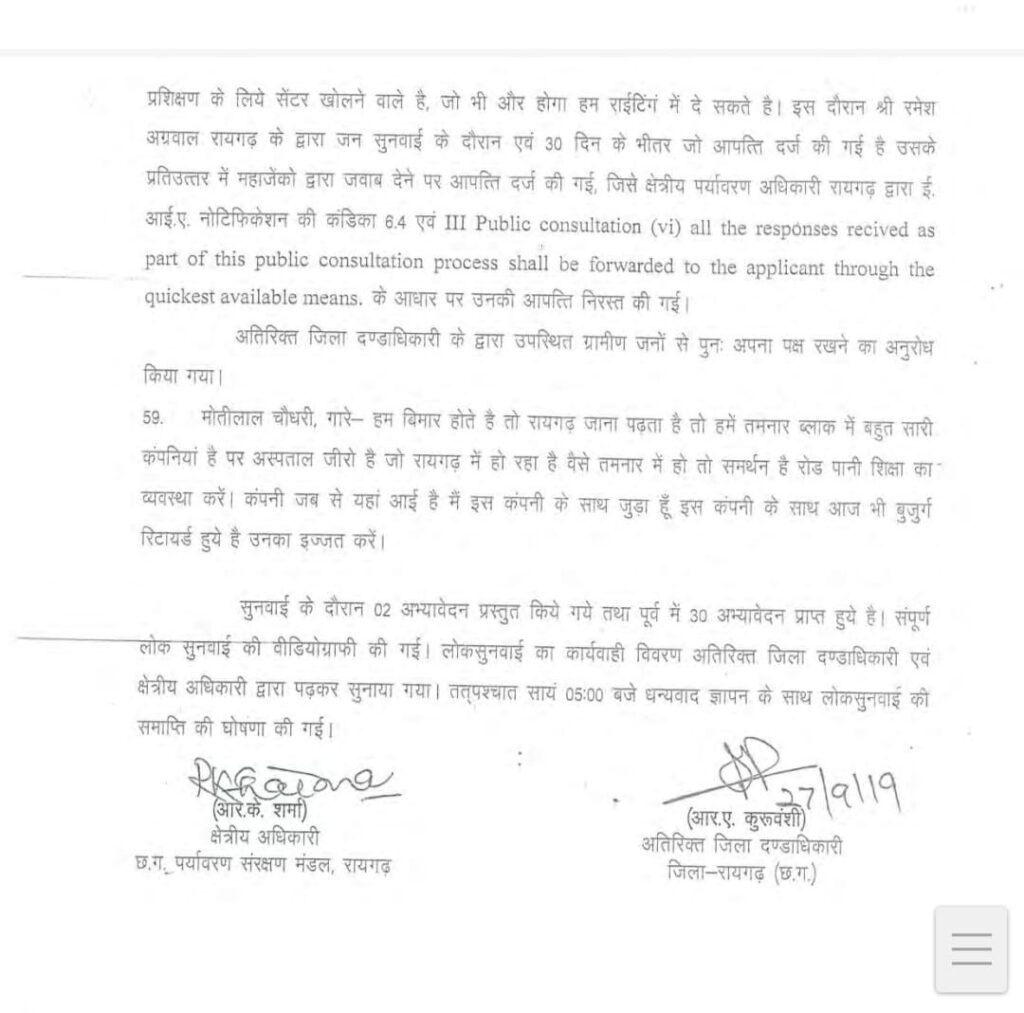 प्रशिक्षण के लिये सेंटर खोलने वाले है, जो भी और होगा हम राईटिंगं में दे सकते है। इस दौरान श्री रमेश
अग्रवाल रायगढ़ के द्वारा जन सुनवाई के दौरान एवं 30 दिन के भीतर जो आपत्ति दर्ज की गई है उसके
प्रतिउत्तर में महाजेंको द्वारा जवाब देने पर आपत्ति दर्ज की गई, जिसे क्षेत्रीय पर्यावरण अधिकारी रायगढ़ द्वारा ई.
आई.ए. नोटिफिकेशन की कंडिका 6.4 एवं III Public consultation (vi) all the responses recived as
part of this public consultation process shall be forwarded to the applicant through the
quickest available means. के आधार पर उनकी आपत्ति निरस्त की गई।
अतिरिक्त जिला दण्डाधिकारी के द्वारा उपस्थित ग्रामीण जनों से पुनः अपना पक्ष रखने का अनुरोध
किया गया।
59. मोतीलाल चौधरी, गारे– हम बिमार होते है तो रायगढ़ जाना पढ़ता है तो हमें तमनार ब्लाक में बहुत सारी
कंपनियां है पर अस्पताल जीरो है जो रायगढ़ में हो रहा है वैसे तमनार में हो तो समर्थन है रोड पानी शिक्षा का
व्यवस्था करें। कंपनी जब से यहां आई है मैं इस कंपनी के साथ जुड़ा हूँ इस कंपनी के साथ आज भी बुजुर्ग
रिटायर्ड हुये है उनका इज्जत करें।
सुनवाई के दौरान 02 अभ्यावेदन प्रस्तुत किये गये तथा पूर्व में 30 अभ्यावेदन प्राप्त हुये है। संपूर्ण
लोक सुनवाई की वीडियोग्राफी की गई। लोकसुनवाई का कार्यवाही विवरण अतिरिक्त जिला दण्डाधिकारी एवं
क्षेत्रीय अधिकारी द्वारा पढ़कर सुनाया गया। तत्पश्चात सायं 05:00 बजे धन्यवाद ज्ञापन के साथ लोकसुनवाई की
समाप्ति की घोषणा की गई।
27/9/19
(आर.के. शर्मा) (आर.ए. कुरूवंशी)
क्षेत्रीय अधिकारी अतिरिक्त जिला दण्डाधिकारी
छ.ग. पर्यावरण संरक्षण मंडल, रायगढ़ जिला–रायगढ़ (छ.ग.)